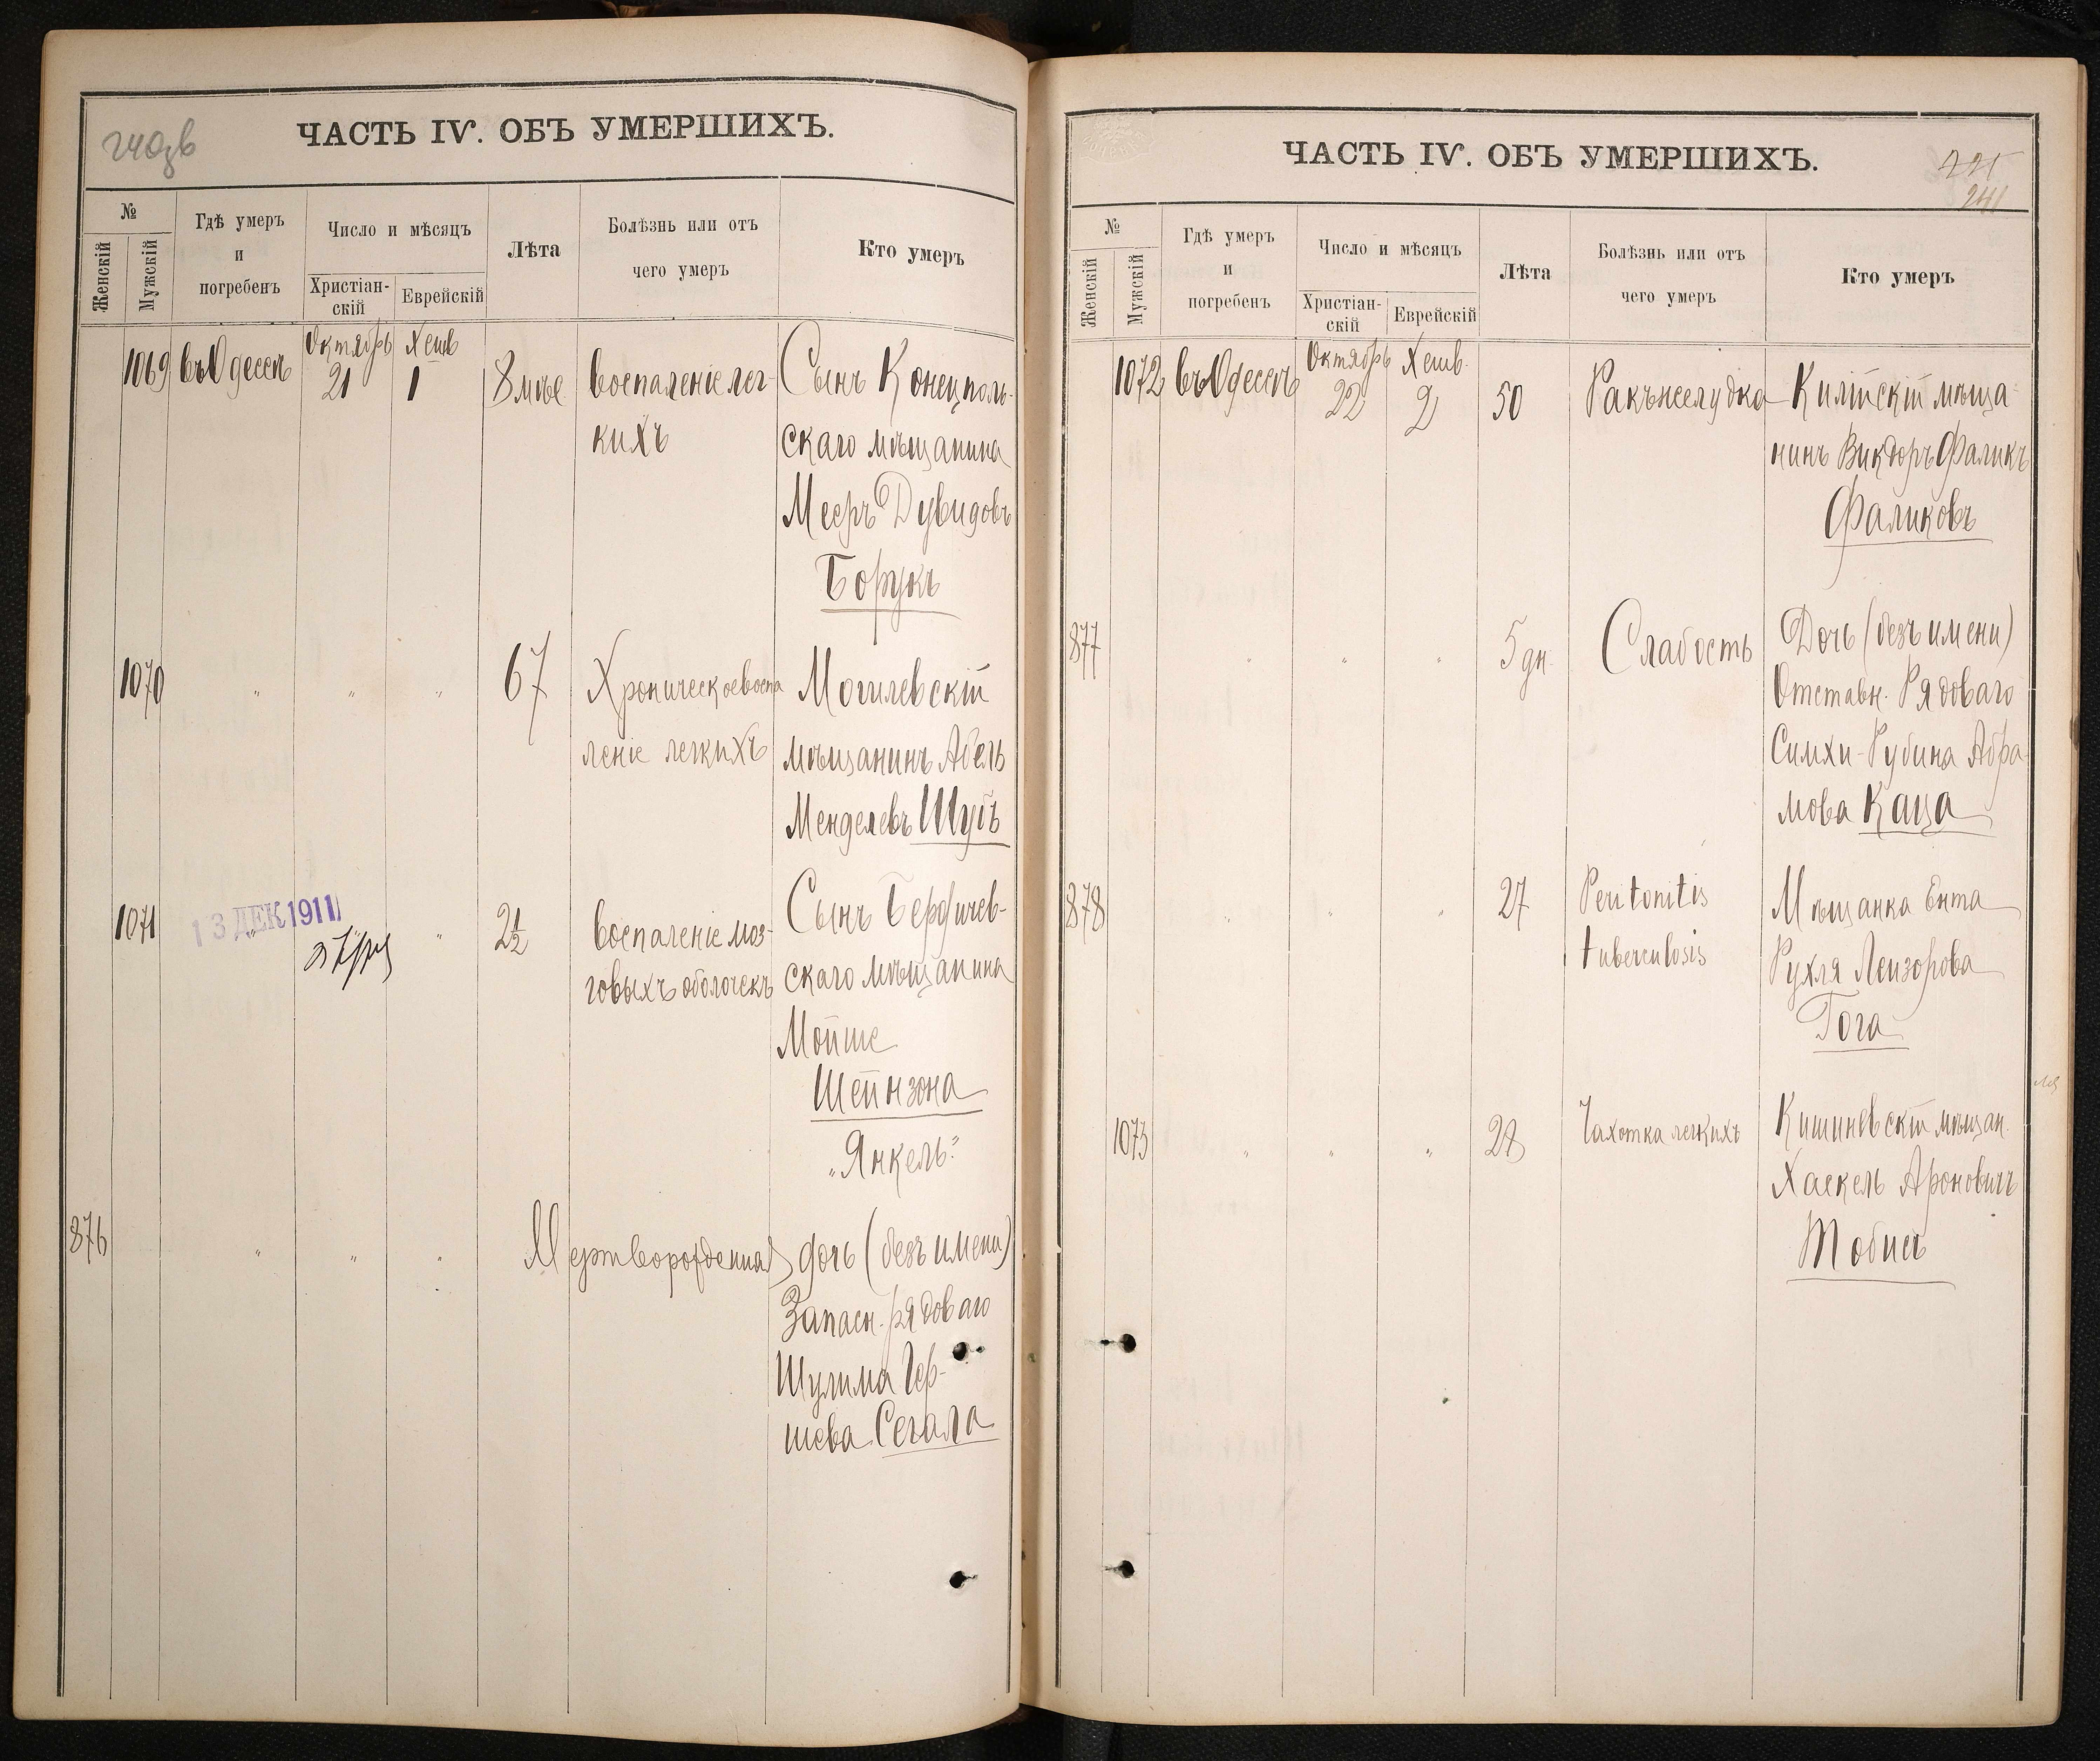 ЧАСТЬ IV. ОБЪ УМЕРШИХЪ.
№
Женскій
Мужскій
Гдѣ умеръ
и
погребенъ
Число и мѣсяцъ
Христіан-
скій
Еврейскій
Лѣта
Болѣзнь или отъ
чего умеръ
Кто умеръ
Октябрь Хешв
1069 въ Одессѣ 21 1 8 мѣс воспаленіе лег- Сынъ Конецполь-
кихъ скаго мѣщанина
Мееръ Дувидовъ
Борукъ
1070 " " " 67 Хроническое воспа Могилевскій
леніе легкихъ мѣщанинъ Абель
Менделевъ Шубъ
13 ДЕК 1911
1071 " " 2½ воспаленіе моз- Сынъ Бердичев-
говыхъ оболочекъ скаго мѣщанина
Мойше
Шейнзона
"Янкель"
876 " " " Мертворожденная дочь (безъ имени)
Запасн. рядоваго
Шулима Гер-
шева Сегала
ЧАСТЬ IV. ОБЪ УМЕРШИХЪ.
221
241
№
Женскій
Мужскій
Гдѣ умеръ
и
погребенъ
Число и мѣсяцъ
Христіан-
скій
Еврейскій
Лѣта
Болѣзнь или отъ
чего умеръ
Кто умеръ
Октябрь Хешв.
1072 въ Одессѣ 22 2 50 Ракъ желудка Килійскій мѣща
нинъ Викторъ Фаликъ
Фаликовъ
877 " " " 5 дн. Слабость Дочь (безъ имени)
Отставн. Рядоваго
Симхи-Рубина Абра-
мова Каца
878 " " " 27 Peritonitis Мѣщанка Ента
tuberculosis Рухля Лейзорова
Гога
1073 " " " 28 Чахотка легкихъ Кишиневскій мѣщан.
Хаскель Ароновичъ
Тобисъ